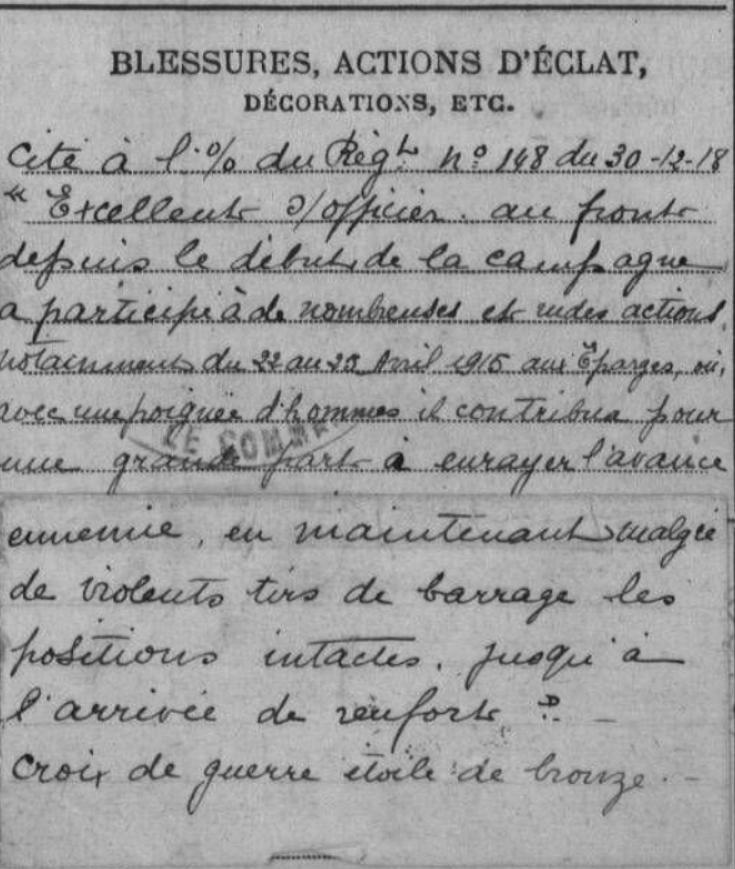 BLESSURES, ACTIONS D'ÉCLAT,
DÉCORATIONS, ETC.
Cité à l'% du Régt nº 148 du 30-12-18
"Excellent s/officier. au front
depuis le début de la campagne
a participé à de nombreuses et rudes actions,
notamment du 22 au 25 Avril 1915 aux Éparges, où,
avec une poignée d'hommes il contribua pour
LE COMMA
une grande part à enrayer l'avance
ennemie, en maintenant malgré
de violents tirs de barrage les
positions intactes. jusqu'à
l'arrivée de renforts".
Croix de guerre étoile de bronze.